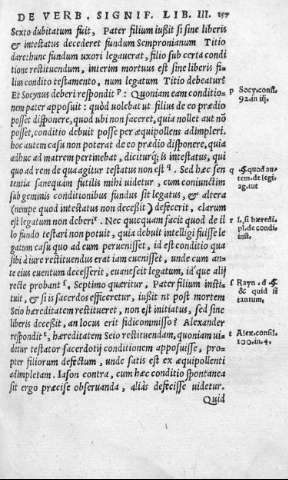 DE VERB. SIGNIF. LIB. III. 157
Sexto dubitatum fuit, Pater filium iußit si sine liberis
& intestatus decederet fundum Sempronianum Titio
dare: hunc fundum uxori legauerat, filio sub certa conditi
one restituendum, interim mortuus est sine liberis fi-
lius condito testamento, num legatum Titio debeatur?
Et Socynus deberi respondit p: Quoniam eam conditio-
nem pater apposuit: quòd uolebat ut filius de eo prædio
posset disponere, quod ubi non faceret, quia nollet aut nō
posset, conditio debuit posse per æquipollens adimpleri.
hoc autem casu non poterat de eo prædio disponere, quia
adhuc ad matrem pertinebat, diciturq́; is intestatus, qui
quo ad rem de qua agitur testatus non est q. Sed hæc sen
tentia sanequàm futilis mihi uidetur, cum coniunctim
sub geminis conditionibus fundus sit legatus, & altera
(nempe quod intestatus non decessit) defecerit, clarum
est legatum non deberi r. Nec quicquam facit quod de il
lo fundo testari non potuit, quia debuit intelligi fuisse le
gatum casu quo ad eum peruenisset, id est conditio qua
sibi ad iure restituendus erat iam cucnisset, unde cum an-
te eius euentum decesserit, euanescit legatum, id'que ali j
recte probant s. Septimo quæritur, Pater filium insti-
tuit, & si is sacerdos efficeretur, iußit ut post mortem
Seio hæreditatem restitueret, non est initiatus, sed sine
liberis deceßit, an locus erit fidicommisso? Alexander
respondit t, hæreditatem Seio restituendam, quoniam ui-
detur testator sacerdotij conditionem apposuisse, pro-
pter filiorum defectum, unde satis est ex æquipollenti
adimpletam. Iason contra, cum hæc conditio spontanea
sit ergo præcise obseruanda, aliàs defecisse uidetur.
Quid
p Socy. cons.
92. in iij.
q
r l. si hæredi
pl. de condi.
inst.
s Rayn. d. §
& quid si
tantum,
t Alex. consil.
100. in. 4.